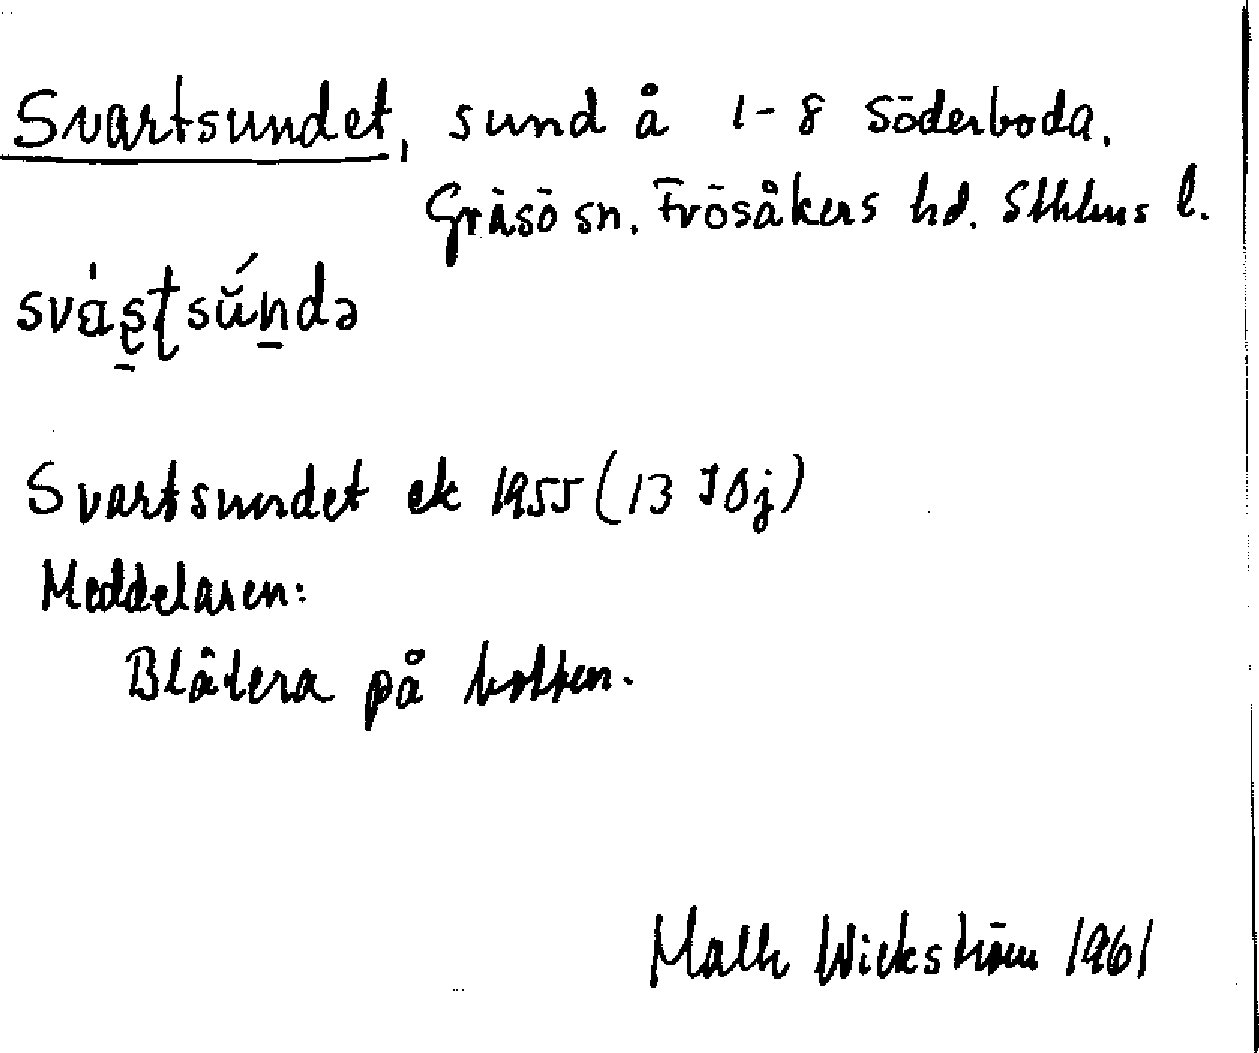 Svartsundet, sund å 1-8 Söderboda.
Gräsö sn. Frösåkers hd. Sthlms l.
svásṭsúndə
Svartsundet ek 1955 (13 I 0j)
Meddelaren:
Blålera på botten.
Wickström 1961